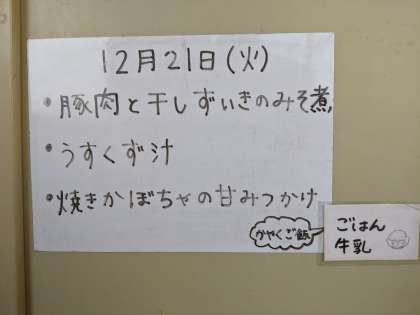 12月21日(火)
・豚肉と干しずいきのみそ煮
・うすくず汁
・焼きかぼちゃの甘みつかけ
かやくご飯
ごはん
牛乳